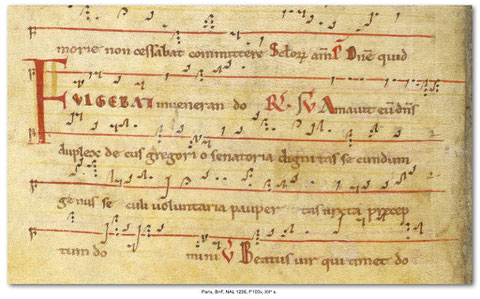 morie non cessabat committere Scłorꝝ añ D̄ne quid
FULGEBAT in veneran do R̃ SVA Amavit eū dñs
duplex de cus gregori o senatoria dignitas se cundum
genus se culi voluntaria pauper tas iuxta precep
tum do mini V Beatus vir qui timet do
Paris, BnF, NAL 1236, F°100v, XIIᵉ s.